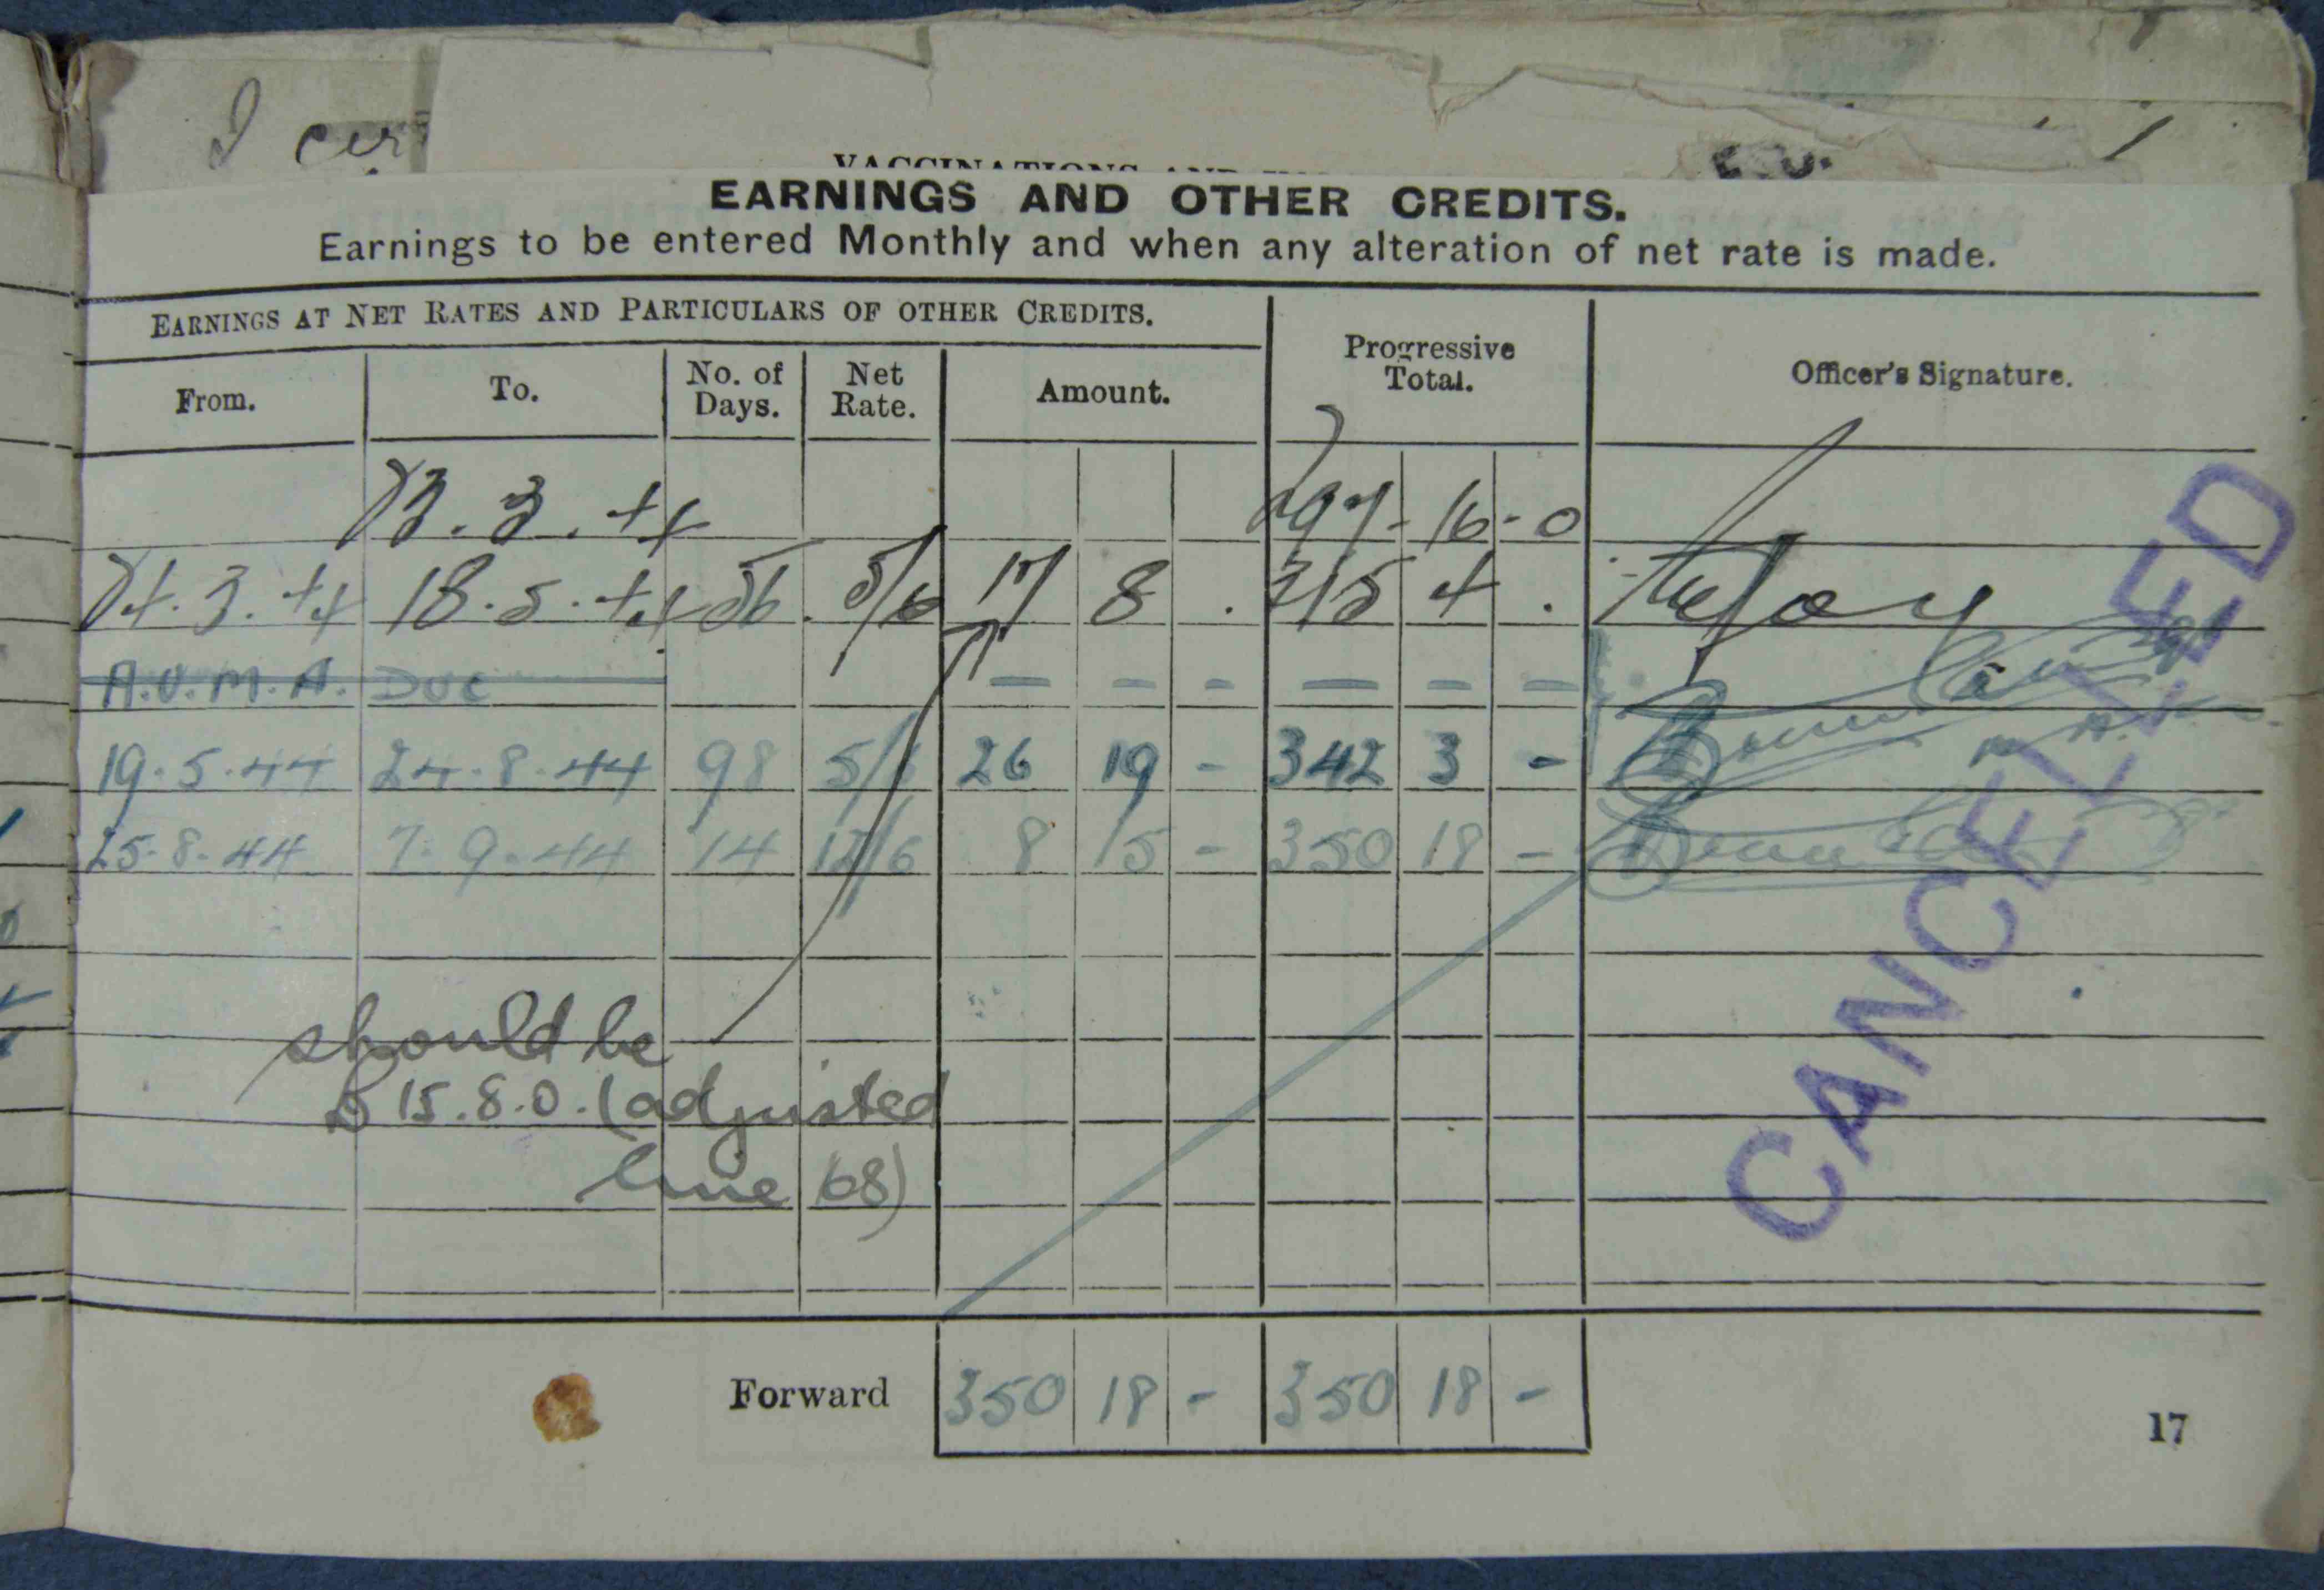 I cer
VACCINATIONS AND
EARNINGS AND OTHER CREDITS.
Earnings to be entered Monthly and when any alteration of net rate is made.
EARNINGS AT NET RATES AND PARTICULARS OF OTHER CREDITS.
From. To. No. of Days. Net Rate. Amount. Progressive Total. Officer's Signature.
23.3.44 297-16-0
24.3.44 18.5.44 56. 5/6 17 8 . 315 4 .
A.V.M.A. DUE — — — — — —
19.5.44 24.8.44 98 5/6 26 19 - 342 3 -
25.8.44 7.9.44 14 12/6 8 15 - 350 18 -
should be
£15.8.0. (adjusted
line 68)
CANCELLED
Forward 350 18 - 350 18 -
17